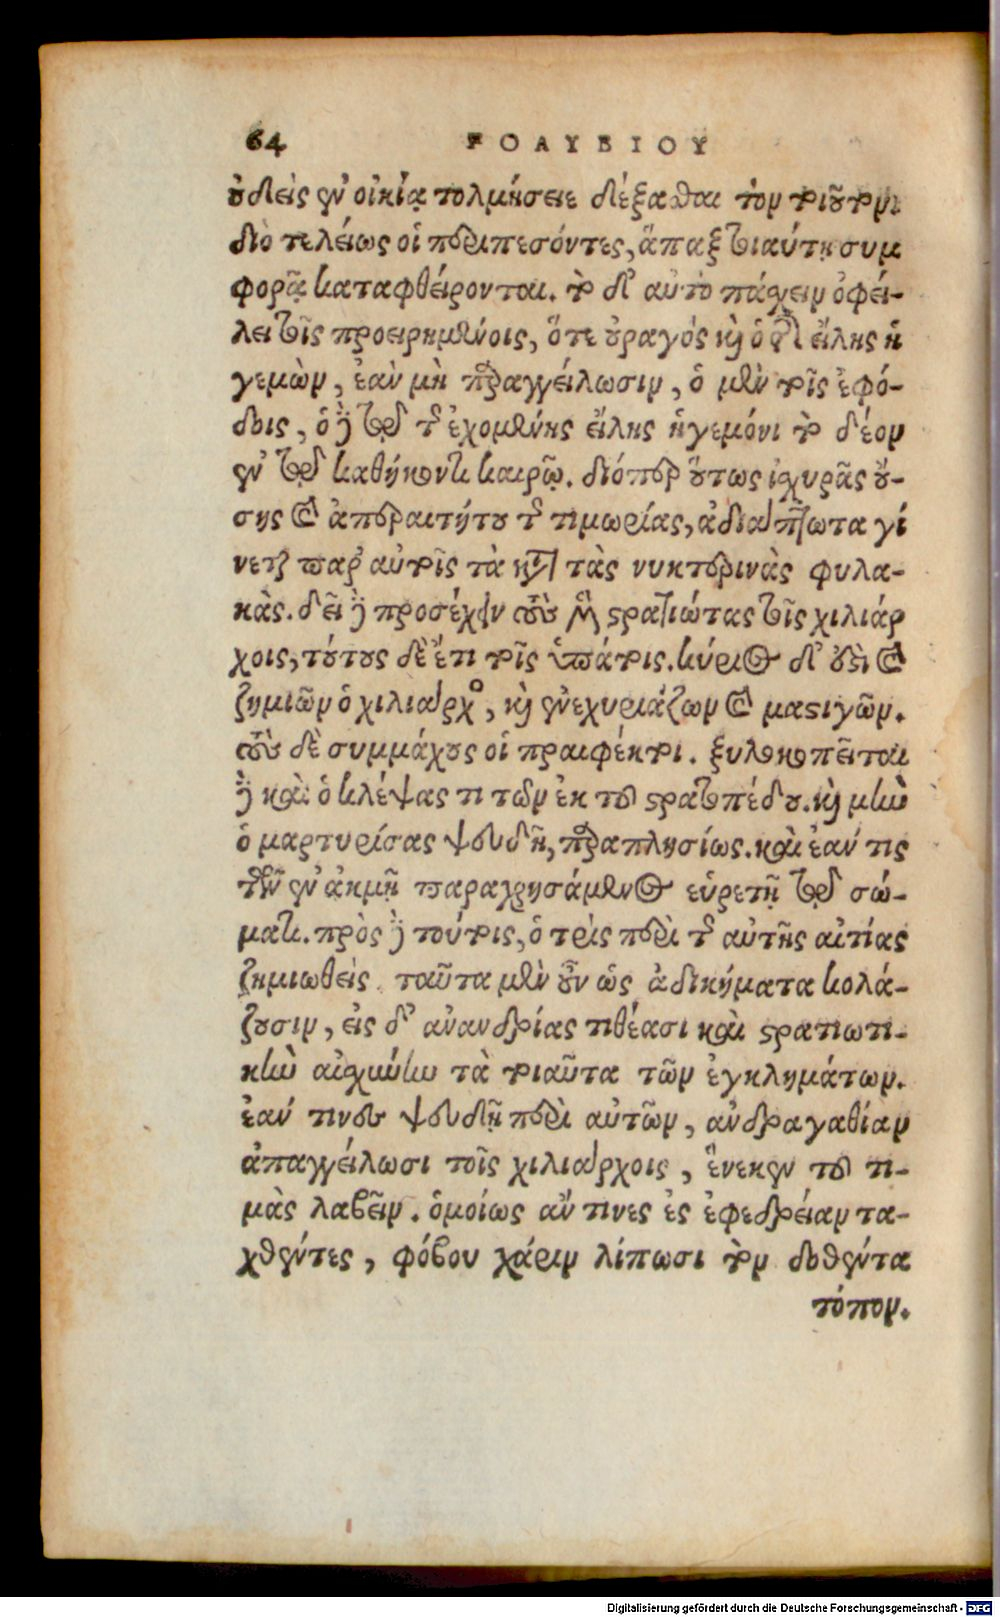 64 ΠΟΛΥΒΙΟΥ
ὐδεὶς ἐν οἰκίᾳ τολμήσειε δέξαθαι τὸν τοιοῦτον·
διὸ τελείως οἱ περιπεσόντες, ἅπαξ τοιαύτῃ συμ
φορᾷ καταφθείρονται. τὸ δ᾽ αὐτὸ πάσχειν ὀφεί-
λει τοῖς προειρημένοις, ὅτε οὐραγὸς καὶ ὁ τῆς εἴλης ἡ
γεμὼν, ἐὰν μὴ παραγγείλωσιν, ὁ μὲν τοῖς ἐφό-
δοις, ὁ δὲ τῷ τῆς ἐχομένης εἴλης ἡγεμόνι τὸ δέον
ἐν τῷ καθήκοντι καιρῷ. διόπερ οὕτως ἰσχυρᾶς οὔ-
σης καὶ ἀπεραιτήτου τῆς τιμωρίας, ἀδιάπτωτα γί
νεται παρ᾽ αὐτοῖς τὰ κατὰ τὰς νυκτερινὰς φυλα-
κάς. δεῖ δὲ προσέχειν τοὺς μὲν στρατιώτας τοῖς χιλιάρ
χοις, τούτους δὲ ἔτι τοῖς ὑπάτοις. κύριος δ᾽ ἐστὶ καὶ
ζημιῶν ὁ χιλίαρχος, καὶ ἐνεχυριάζων καὶ μαστιγῶν.
τοὺς δὲ συμμάχους οἱ πραιφέκτοι. ξυλοκοπεῖται
δὲ καὶ ὁ κλέψας τι τῶν ἐκ τοῦ στρατοπέδου. καὶ μὴν
ὁ μαρτυρίσας ψευδῆ, παραπλησίως. καὶ ἐάν τις
τῶν ἐν ἀκμῇ παραχρησάμενος εὑρετῇ τῷ σώ-
ματι. πρὸς δὲ τούτοις, ὁ τρὶς περὶ τῆς αὐτῆς αἰτίας
ζημιωθείς. ταῦτα μὲν οὖν ὡς ἀδικήματα κολά-
ζουσιν, εἰς δ᾽ ἀνανδρίας τιθέασι καὶ στρατιωτι-
κὴν αἰσχύνην τὰ τοιαῦτα τῶν ἐγκλημάτων.
ἐάν τινες ψευδῆ περὶ αὐτῶν, ἀνδραγαθίαν
ἀπαγγείλωσι τοῖς χιλιάρχοις, ἕνεκεν τοῦ τι-
μὰς λαβεῖν. ὁμοίως ἄν τινες ἐς ἐφεδρείαν τα-
χθέντες, φόβου χάριν λίπωσι τὸν δοθέντα
τόπον.
Digitalisierung gefördert durch die Deutsche Forschungsgemeinschaft - DFG